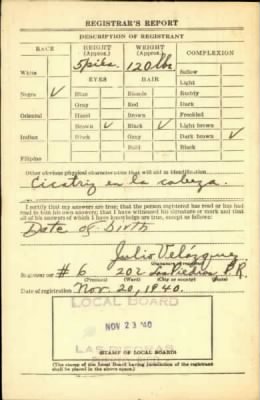 REGISTRAR'S REPORT
DESCRIPTION OF REGISTRANT
RACE HEIGHT (Approx.) WEIGHT (Approx.) COMPLEXION
5 pies. 120 lbs
White Sallow
EYES HAIR Light
Negro ✓ Blue Blonde Ruddy
Gray Red Dark
Oriental Hazel Brown Freckled
Brown ✓ Black ✓ Light brown
Indian Black Gray Dark brown ✓
Bald Black
Filipino
Other obvious physical characteristics that will aid in identification
Cicatriz en la cabeza.
I certify that my answers are true; that the person registered has read or has had
read to him his own answers; that I have witnessed his signature or mark and that
all of his answers of which I have knowledge are true, except as follows:
Date of Birth
Julio Velázquez
Registrar for # 6 202 Las Piedras, P.R.
(Precinct) (Ward) (City or county) (State)
Date of registration Nov. 20, 1940.
LOCAL BOARD
NOV 23 '40
LAS PIEDRAS
STAMP OF LOCAL BOARD
(The stamp of the Local Board having jurisdiction of the registrant
shall be placed in the above space.)